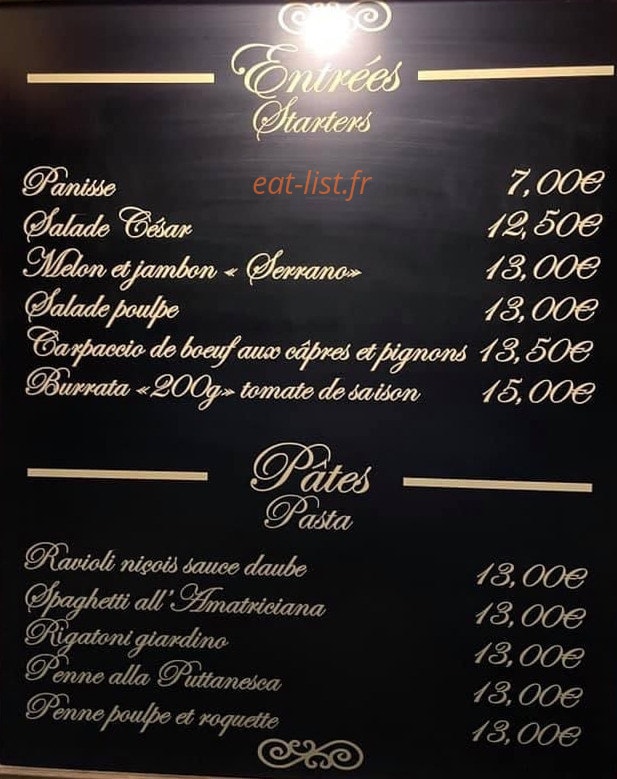 Entrées
Starters
eat-list.fr
Panisse 7,00€
Salade César 12,50€
Melon et jambon « Serrano» 13,00€
Salade poulpe 13,00€
Carpaccio de boeuf aux câpres et pignons 13,50€
Burrata «200g» tomate de saison 15,00€
Pâtes
Pasta
Ravioli niçois sauce daube 13,00€
Spaghetti all'Amatriciana 13,00€
Rigatoni giardino 13,00€
Penne alla Puttanesca 13,00€
Penne poulpe et roquette 13,00€